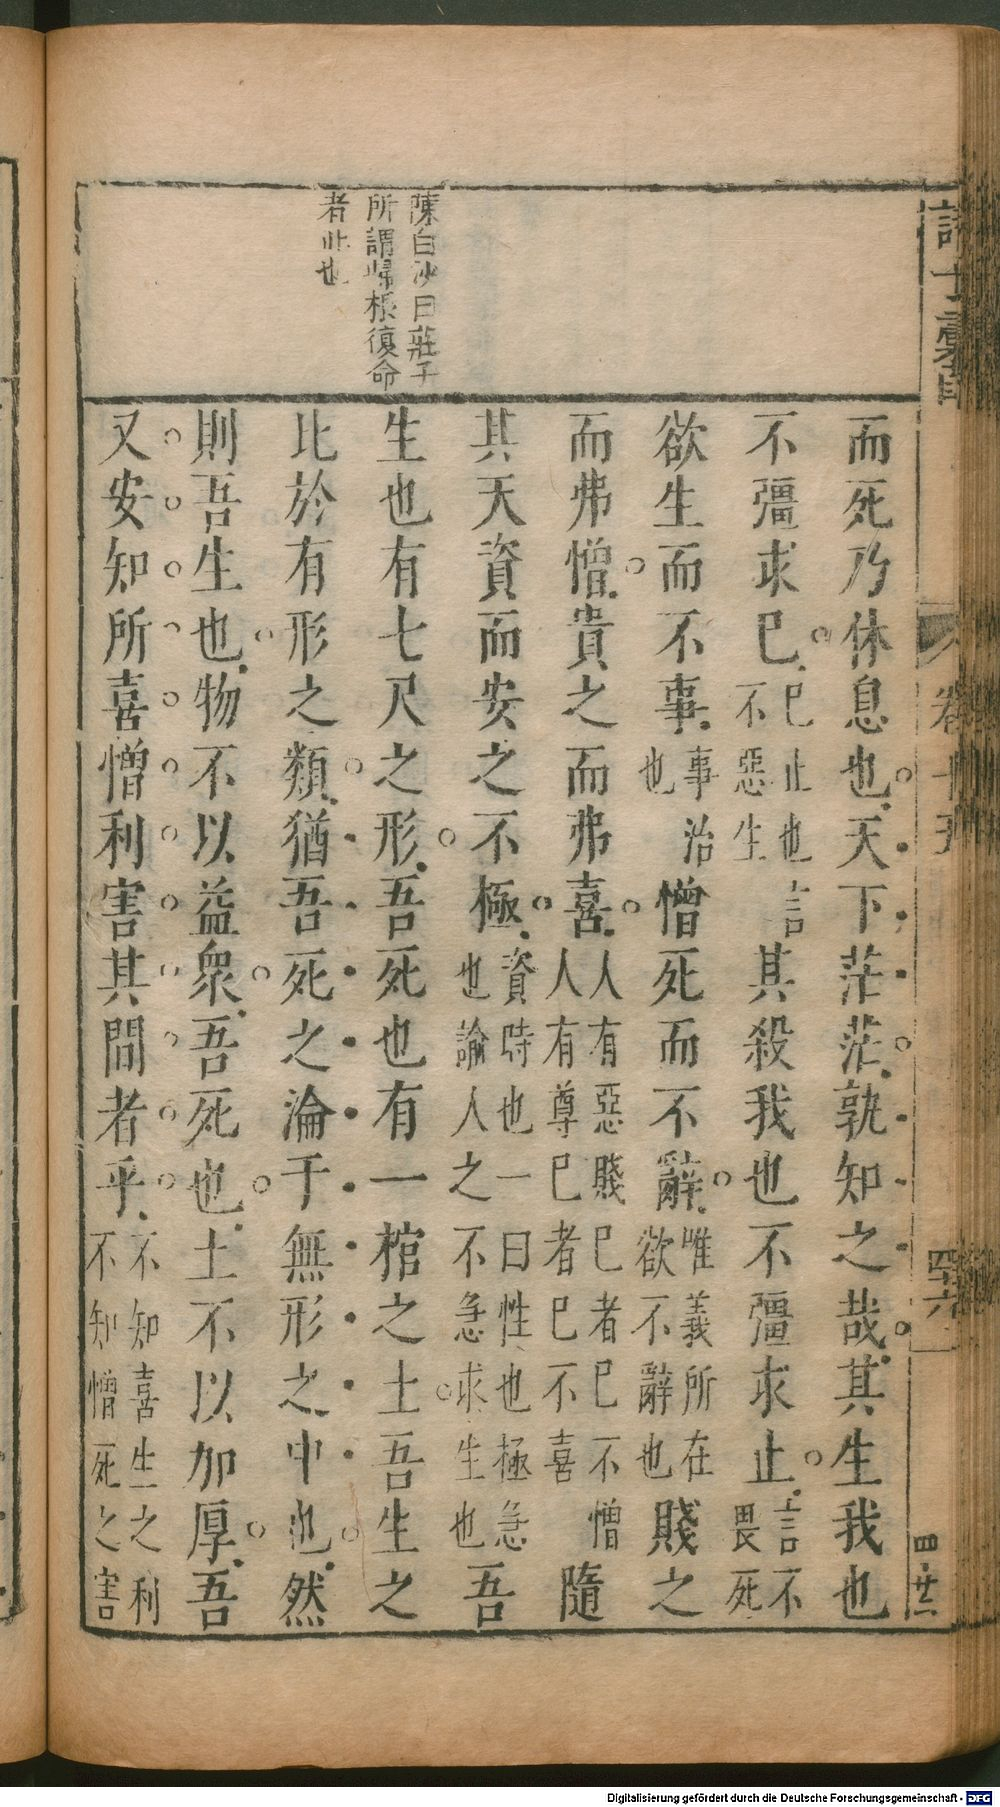 陳白沙曰莊子
所謂歸根復命
者此也
而死乃休息也天下茫茫孰知之哉其生我也
不彊求已已止也言不惡生其殺我也不彊求止言不畏死
欲生而不事事治也憎死而不辭唯義所在欲不辭也賤之
而弗憎貴之而弗喜人有惡賤已者已不憎人有尊已者已不喜隨
其天資而安之不極資時也一曰性也極急也論人之不急求生也吾
生也有七尺之形吾死也有一棺之土吾生之
比於有形之類猶吾死之淪于無形之中也然
則吾生也物不以益衆吾死也土不以加厚吾
又安知所喜憎利害其間者乎不知喜生之利不知憎死之害
卷十五
四六
四廿二
Digitalisierung gefördert durch die Deutsche Forschungsgemeinschaft - DFG